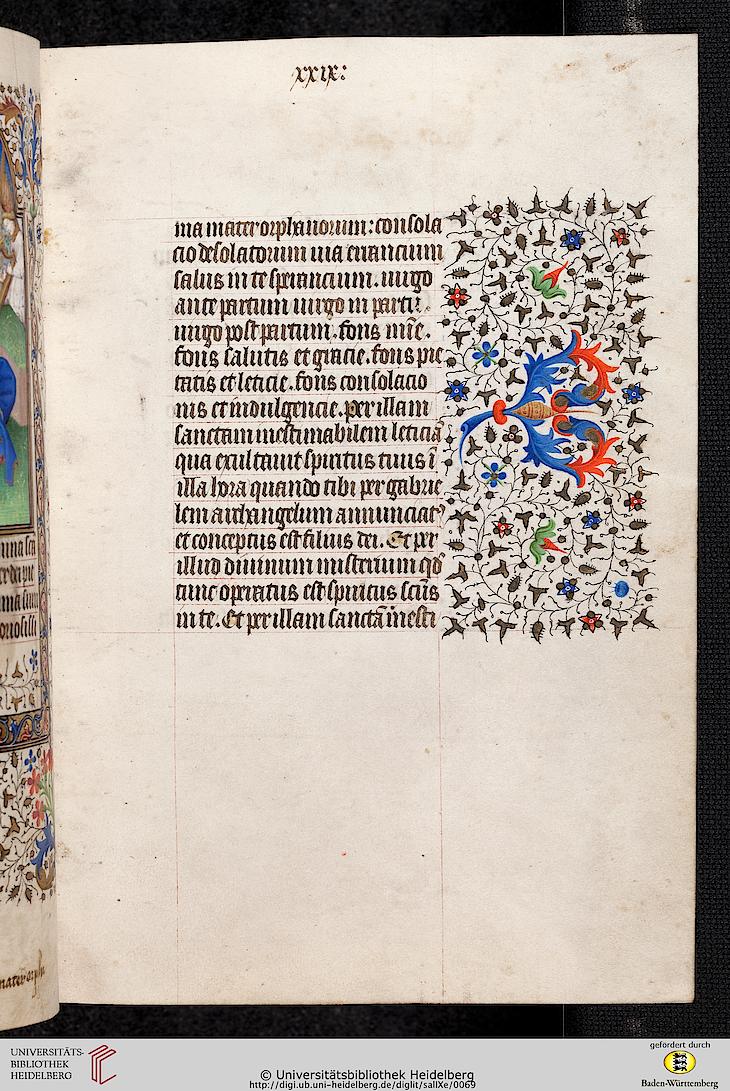 xxix:
ma mater orphanorum: consola
cio desolatorum via errancium
salus in te sperancium. virgo
ante partum virgo in partu.
virgo post partum. fons mie.
fons salutis et gracie. fons pie
tatis et leticie. fons consolacio
nis et indulgencie. per illam
sanctam inestimabilem leticiā
qua exultauit spiritus tuus ī
illa hora quando tibi per gabrie
lem archangelum annunciat᷒
et conceptus est filius dei. Et per
illud diuinum misterium qd
tunc operatus est spiritus scūs
in te. Et per illam sanctā inesti
mater orpha
UNIVERSITÄTS-
BIBLIOTHEK
HEIDELBERG
© Universitätsbibliothek Heidelberg
http://digi.ub.uni-heidelberg.de/diglit/sallXe/0069
gefördert durch
Baden-Württemberg